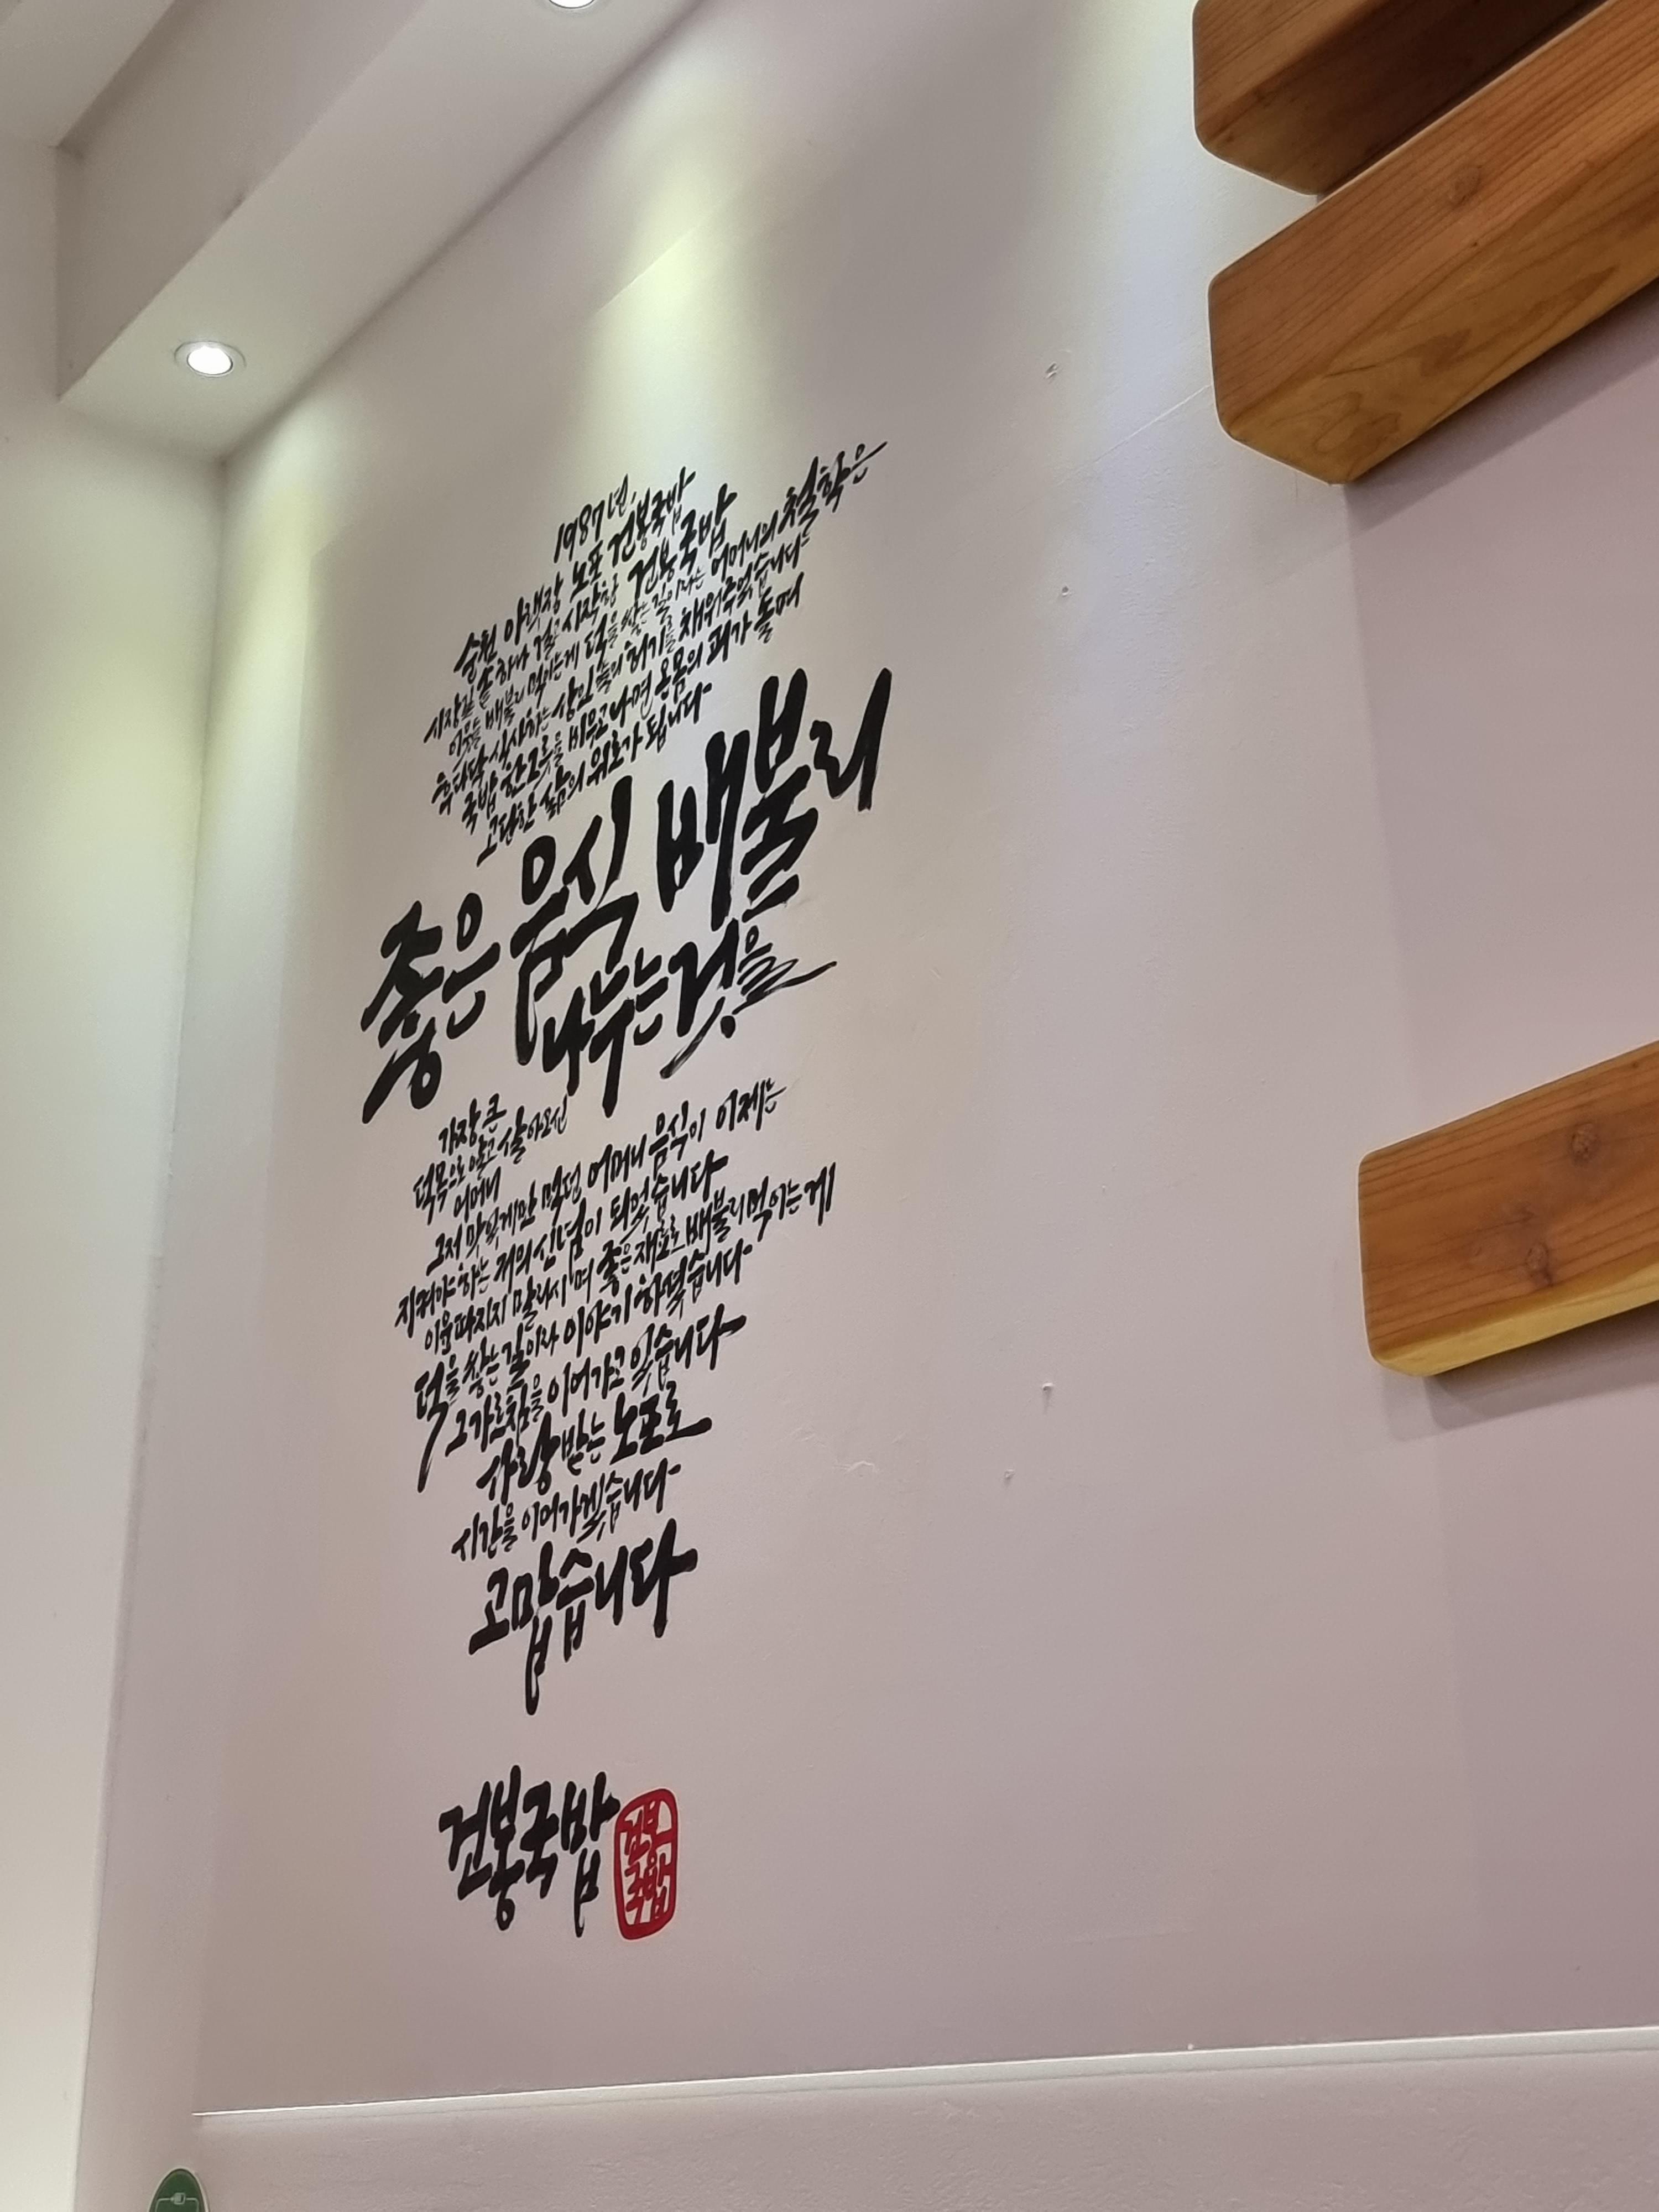 1987년,
순천 아랫장 노포 건봉국밥
시장길 솥 하나 걸고 시작한 건봉국밥
이웃들 배불리 먹이는게 덕을 쌓는 길이라는 어머니의 철학은
후다닥 식사하는 상인들의 허기를 채워주었습니다
국밥 한그릇을 비우고 나면 온몸의 피가 돌며
고단한 삶의 위로가 됩니다
좋은 음식 배불리
나누는것을
가장 큰
덕목으로 알고 살아오신
어머니
그저 맛있게만 먹던 어머니 음식이 이제는
지켜야 하는 저의 신념이 되었습니다
이윤 따지지 말라시며 좋은 재료로 배불리 먹이는 게
덕을 쌓는 길이라 이야기 하셨습니다
그 가르침을 이어가고 있습니다
사랑받는 노포로
시간을 이어가겠습니다
고맙습니다
건봉국밥
건봉
국밥